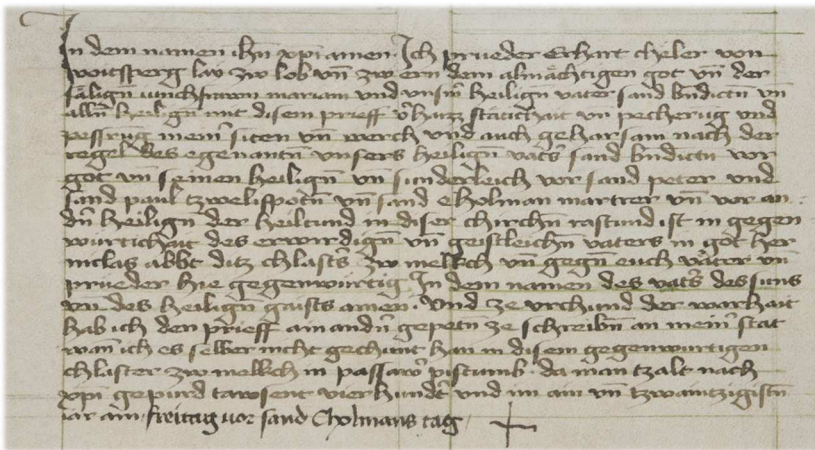 In dem namen ihū xp̄i amen. Ich prueder Erhart cheler von
voitsperg lav zw lob vn̄ zw ern dem almächtigen got vn̄ der
sälign̄ iunchfrawn mariam vnd vnsm̄ heilign̄ vater sand bn̄dictn̄ vn̄
alln̄ heilign̄ mit disem prieff v̄haizz stätichait vn̄ pecherūg vnd
pessrūg mein̄ siten vn̄ werch vnd auch gehorsam nach der
regel des egenantn̄ vnsers heilign̄ vaters sand bn̄dictn̄ vor
got vn̄ seinen heilign̄ vn̄ sunderleich vor sand peter vnd
sand paul tzwelifpotn̄ vn̄ sand cholman martrer vn̄ vor an
dn̄ heilign̄ der heiltund in diser chirchn̄ rastund ist in gegen
würtichait des erwirdign̄ vn̄ geistleichn̄ vaters in got her
niclas abbt ditz chlasters zw melkch vn̄ gegn̄ euch väter vn̄
prueder hie gegenwürtig. In dem namen des vaters des suns
vn̄ des heilign̄ gaists amen. Vnd ze vrchund der warhait
hab ich den prieff ain andn̄ gepetn̄ ze schreibn̄ an mein̄ stat
wan̄ ich es selber nicht gechunt han in disem gegenwurtigen
chlaster zw mellich in passawer pistumb. da man tzalt nach
xp̄i gepurd tawsent vierhundert vnd im ain vn̄ tzwaintzigistn̄
iar am freitag vor sand Cholmans tag